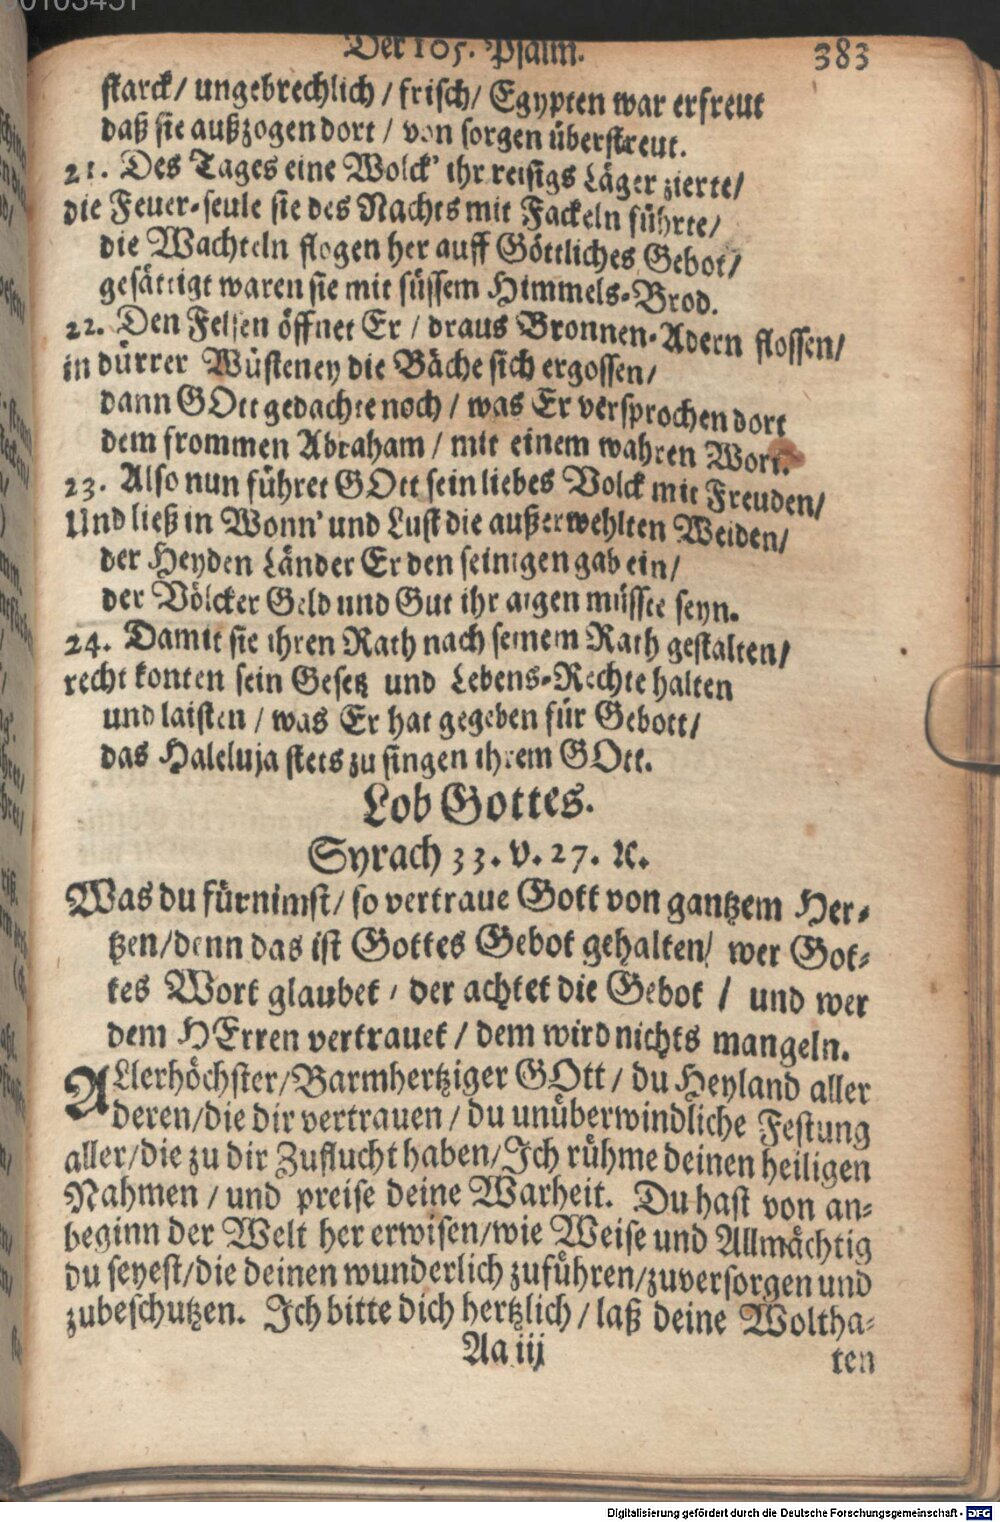 Der 105. Psalm. 383
starck/ ungebrechlich / frisch/ Egypten war erfreut
daß sie außzogen dort / von sorgen überstreut.
21. Des Tages eine Wolck' ihr reisigs Läger zierte/
die Feuer-seule sie des Nachts mit Fackeln führte/
die Wachteln flogen her auff Göttliches Gebot/
gesättigt waren sie mit süssem Himmels-Brod.
22. Den Felsen öffnet Er / draus Bronnen-Adern flossen/
in dürrer Wüsteney die Bäche sich ergossen/
dann GOtt gedachte noch / was Er versprochen dort
dem frommen Abraham / mit einem wahren Wort.
23. Also nun führet GOtt sein liebes Volck mit Freuden/
Und ließ in Wonn' und Lust die außerwehlten Weiden/
der Heyden Länder Er den seinigen gab ein/
der Völcker Geld und Gut ihr aigen müsste seyn.
24. Damit sie ihren Rath nach seinem Rath gestalten/
recht konten sein Gesetz und Lebens-Rechte halten
und laisten / was Er hat gegeben für Gebott/
das Haleluja stets zu singen ihrem GOtt.
Lob Gottes.
Syrach 33. v. 27. ꝛc.
Was du fürnimst/ so vertraue Gott von gantzem Her-
tzen/denn das ist Gottes Gebot gehalten/ wer Got-
tes Wort glaubet / der achtet die Gebot / und wer
dem HErren vertrauet / dem wird nichts mangeln.
ALlerhöchster/Barmhertziger GOtt / du Heyland aller
deren/die dir vertrauen / du unüberwindliche Festung
aller/die zu dir Zuflucht haben/Ich rühme deinen heiligen
Nahmen / und preise deine Warheit. Du hast von an-
beginn der Welt her erwisen/wie Weise und Allmächtig
du seyest/die deinen wunderlich zuführen/zuversorgen und
zubeschutzen. Ich bitte dich hertzlich / laß deine Woltha-
Aa iij ten
Digitalisierung gefördert durch die Deutsche Forschungsgemeinschaft - DFG